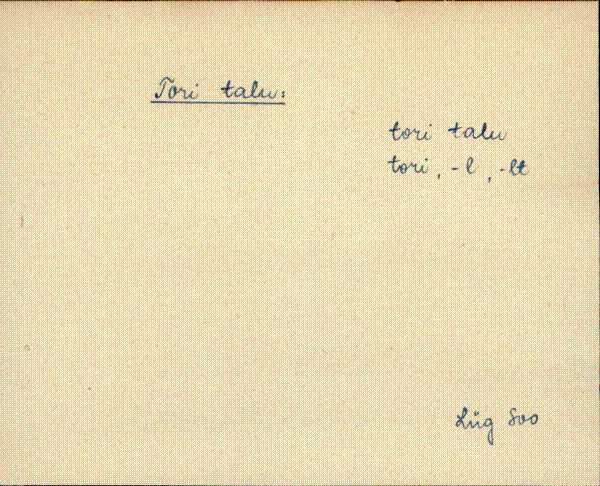 Tori talu:
tori talu
tori, -l, -lt
Lüg Soo